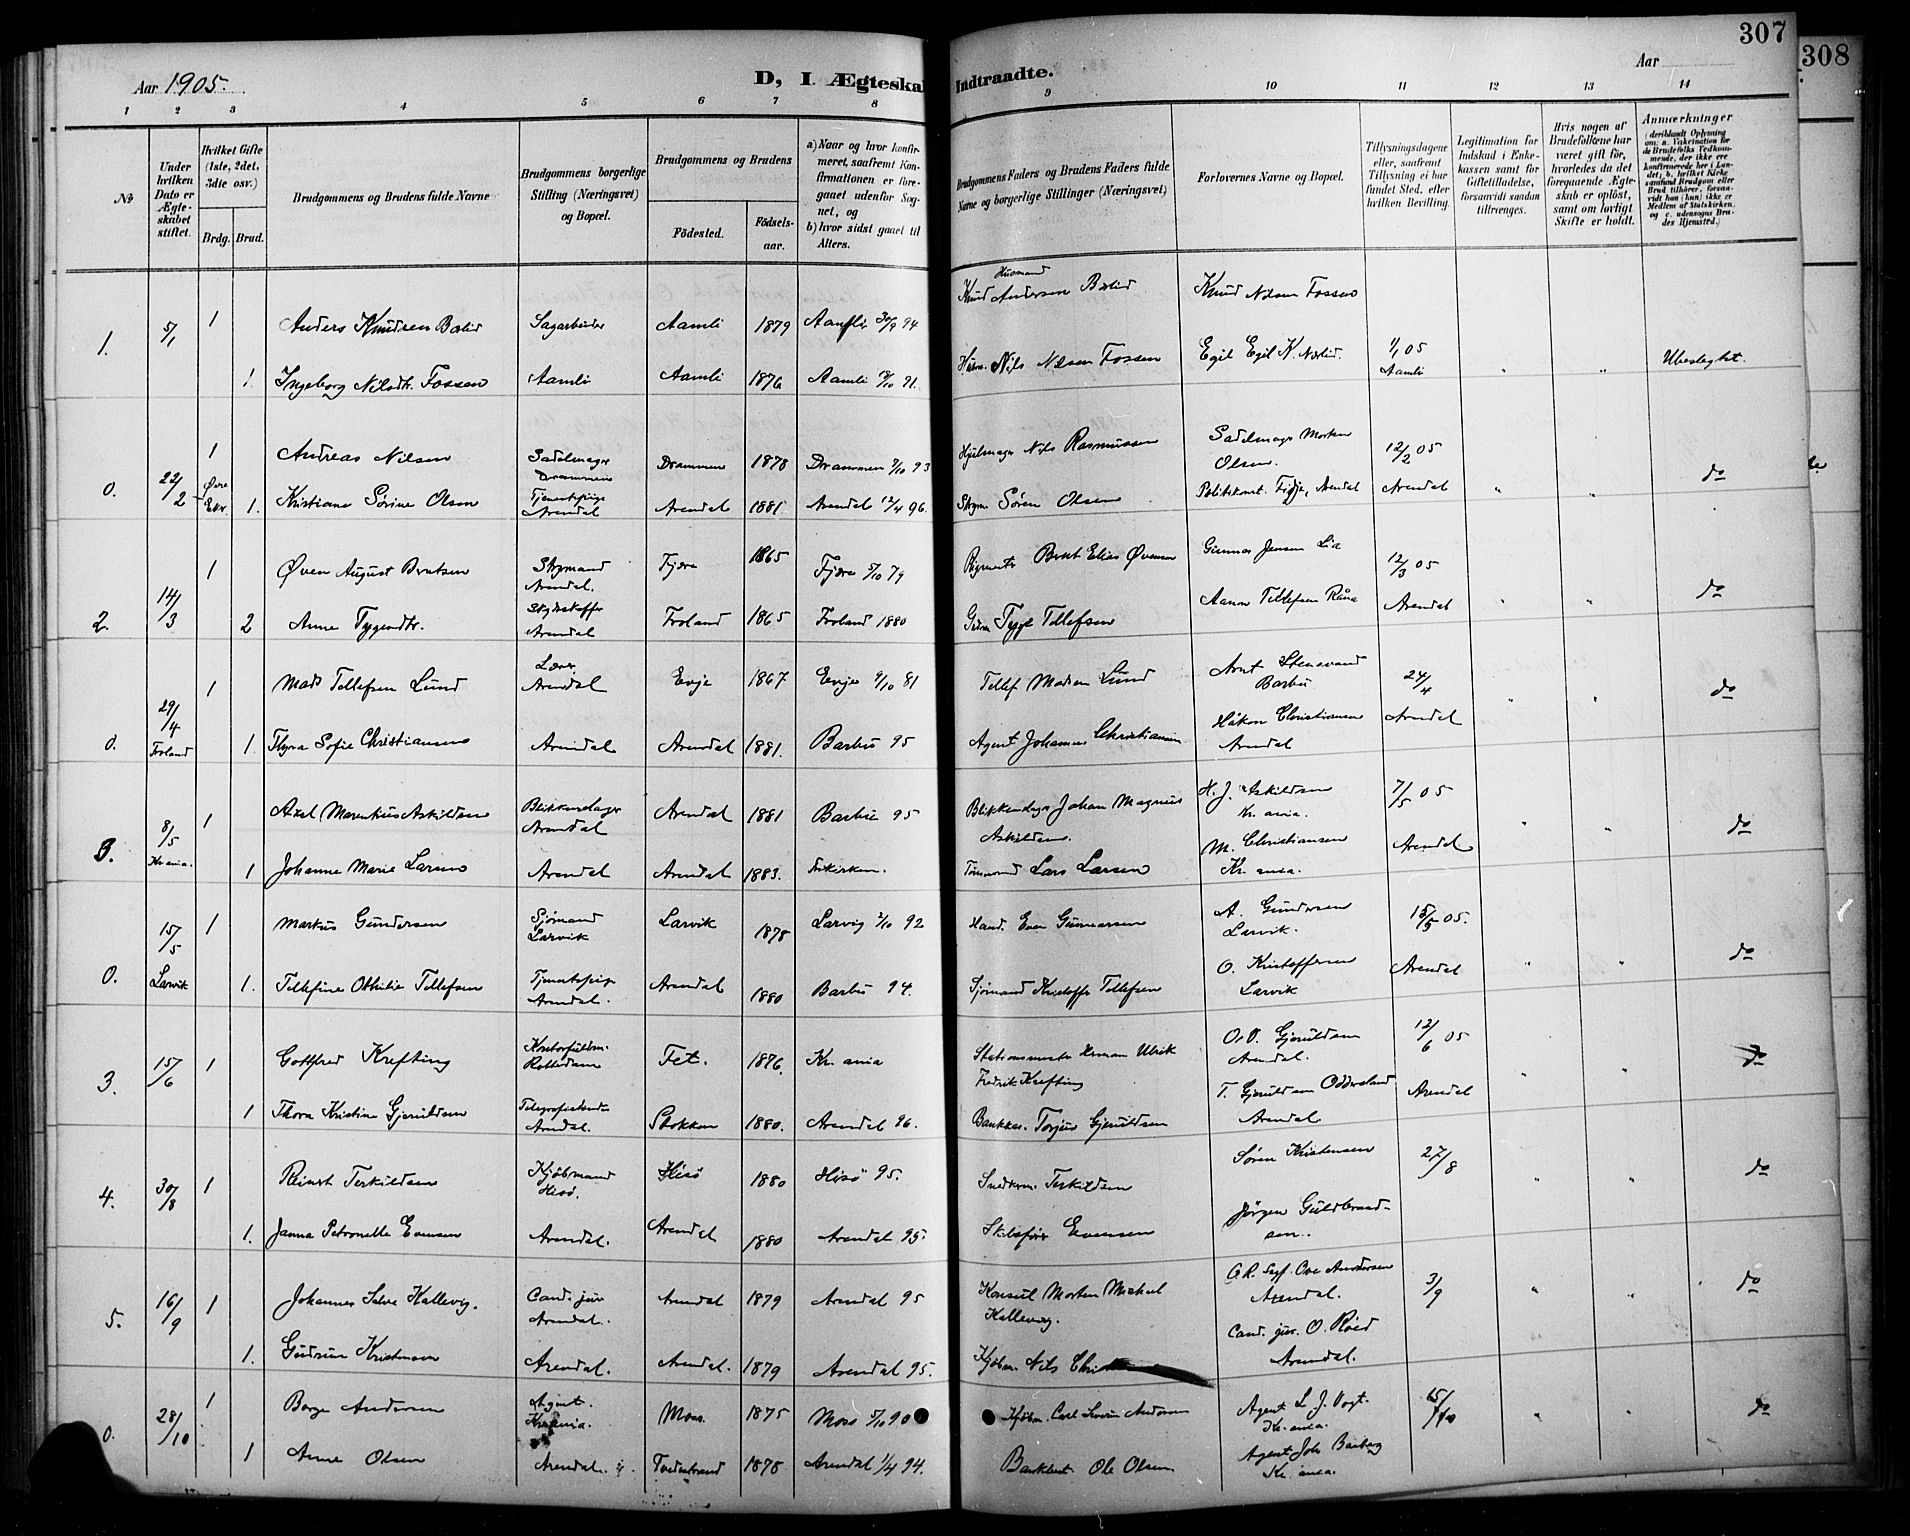 307
308
Aar 1905.
D, I. Ægteskab Indtraadte.
Aar
1 2 3 4 5 6 7 8 9 10 11 12 13 14
No
Under hvilken Dato er Ægteskabet stiftet.
Hvilket Gifte (1ste, 2det, 3die osv.)
Brdg. Brud.
Brudgommens og Brudens fulde Navne
Brudgommens borgerlige Stilling (Næringsvei) og Bopæl.
Brudgommens og Brudens
Födested. Födsels-aar.
a) Naar og hvor konfirmeret, saafremt Konfirmationen er foregaaet udenfor Sognet, og
b) hvor sidst gaaet til Alters.
Brudgommens Faders og Brudens Faders fulde Navne og borgerlige Stillinger (Næringsvei)
Forlovernes Navne og Bopæl.
Tillysningsdagene eller, saafremt Tillysning ei har fundet Sted, efter hvilken Bevilling.
Legitimation for Indskud i Enkekassen samt for Giftetilladelse, forsaavidt saadan tiltrænges.
Hvis nogen af Brudefolkene har været gift før, hvorledes da det foregaaende Ægteskab er oplöst, samt om lovligt Skifte er holdt.
Anmærkninger (deriblandt Oplysning om: a. Vakcination for de Brudefolks Vedkommende, der ikke ere konfirmerede her i Landet; b. hvilket Kirkesamfund Brudgom eller Brud tilhörer, forsaavidt han (hun) ikke er Medlem af Statskirken, og c. udensogns Brudes Hjemsted.)
1. 5/1 1 Anders Knudsen Bælid Sagarbeider Aamli 1879 Aamli 30/9 94 Husmand Knud Andersen Bælid Knud Nilsen Fossen
1. Ingeborg Nilsdtr. Fossen Aamli Aamli 1876 Aamli 91. Husm. Nils Nilsen Fossen Egil Egil K. 1/1 05 Aamli " " Ubeslegtet.
0. 22/2 1 Andreas Nilsen Sadelmager Drammen Drammen 1878 Drammen 7/10 93 Hjulmager Nils Rasmussen Sadelmager Morten Olsen. 12/2 05
Øvre Eker 1. Kristiane Sørine Olsen Tjenestepige Arendal Arendal 1881 Arendal 12/4 96. Styrm. Søren Olsen Politikonst. Fidje, Arendal Arendal " " do
2. 14/3 1 Øven August Berntsen Styrmand Arendal. Fjære 1865 Fjære 5/10 79 Bernt Elias Øvensen Gunnar Jensen Lia 12/3 05
2 Anne Tygesdtr. Arendal Froland 1865 Froland 1880 Gdm. Tyge Tellefsen Aanon Tellefsen Arendal " " do
0. 29/4 1 Mads Tellefsen Lund Lærer Arendal Evje 1867 Evje 9/10 81 Tellef Madsen Lund Arnt Stensvand Barbu 24/4
Froland 1. Thyra Sofie Christiansen Arendal Arendal 1881. Barbu 95 Agent Johannes Christiansen Håkon Christiansen Arendal Arendal " " do
3. 8/5 1 Axel Marentius Askildsen Blikkenslager Arendal Arendal 1881 Barbu 95 Blikkenslager Johan Magnus Askildsen. H. J. Askildsen Kr.ania. 7/5 05
Kr.ania. 1 Johanne Marie Larsen Arendal Arendal 1883. Frikirken. Tømmermd. Lars Larsen M. Christiansen Kr.ania. Arendal " " do
0. 15/5 1 Markus Gundersen Sjømand Larvik Larvik 1878 Larvig 2/10 92 Hand. Even Gunnarsen A. Gundersen Larvik. 15/5 05.
Larvik 1. Tellefine Othilie Tellefsen Tjenestepige Arendal. Arendal 1880 Barbu 94. Sjømand Kristoffer Tellefsen O. Kristoffersen Larvik Arendal " " do
3. 15/6 1 Gottfred Krefting Rotterdam Fet. 1876. Kr.ania Stationsmester Herman Ulrik Fredrik Krefting O. Gjeruldsen Arendal. 12/6 05
1 Thora Kristine Gjeruldsen Telegrafistinde Arendal. Stokken 1880. Arendal 96. Bankkas. Torjus Gjeruldsen T. Gjeruldsen Odderland Arendal Arendal " " do
4. 30/8 1 Reinert Terkildsen Kjøbmand Hisø. Hisø 1880 Hisø 95. Snedkerm. Terkildsen Søren Kristensen 27/8
1. Janna Petronelle Evensen Arendal. Arendal 1880 Arendal 95. Skibsfører Evensen Jørgen Guldbrandsen. " " do
5. 16/9 1 Johannes Salve Kallevig. Cand. jur Arendal. Arendal 1879 Arendal 95 Konsul Morten Michael Kallevig. O.R. Sagf. Ove Andersen Arendal. 3/9
1. Gudrun Kristensen Arendal. Arendal. 1879 Arendal 95. Kjøbm. Nils Cand. jur. O. Røed Arendal. " " do
0. 28/10 1 Borge Andersen Agent. Kr.ania. Moss 1875 Moss 5/10 90 Kjøbm. Carl Severin Andersen Agent L. J. Vogt. Kr.ania. 15/10
1 Anne Olsen Arendal. Tvedestrand 1878 Arendal 1/4 94. Ole Olsen Agent Joh Kr.ania. " " do